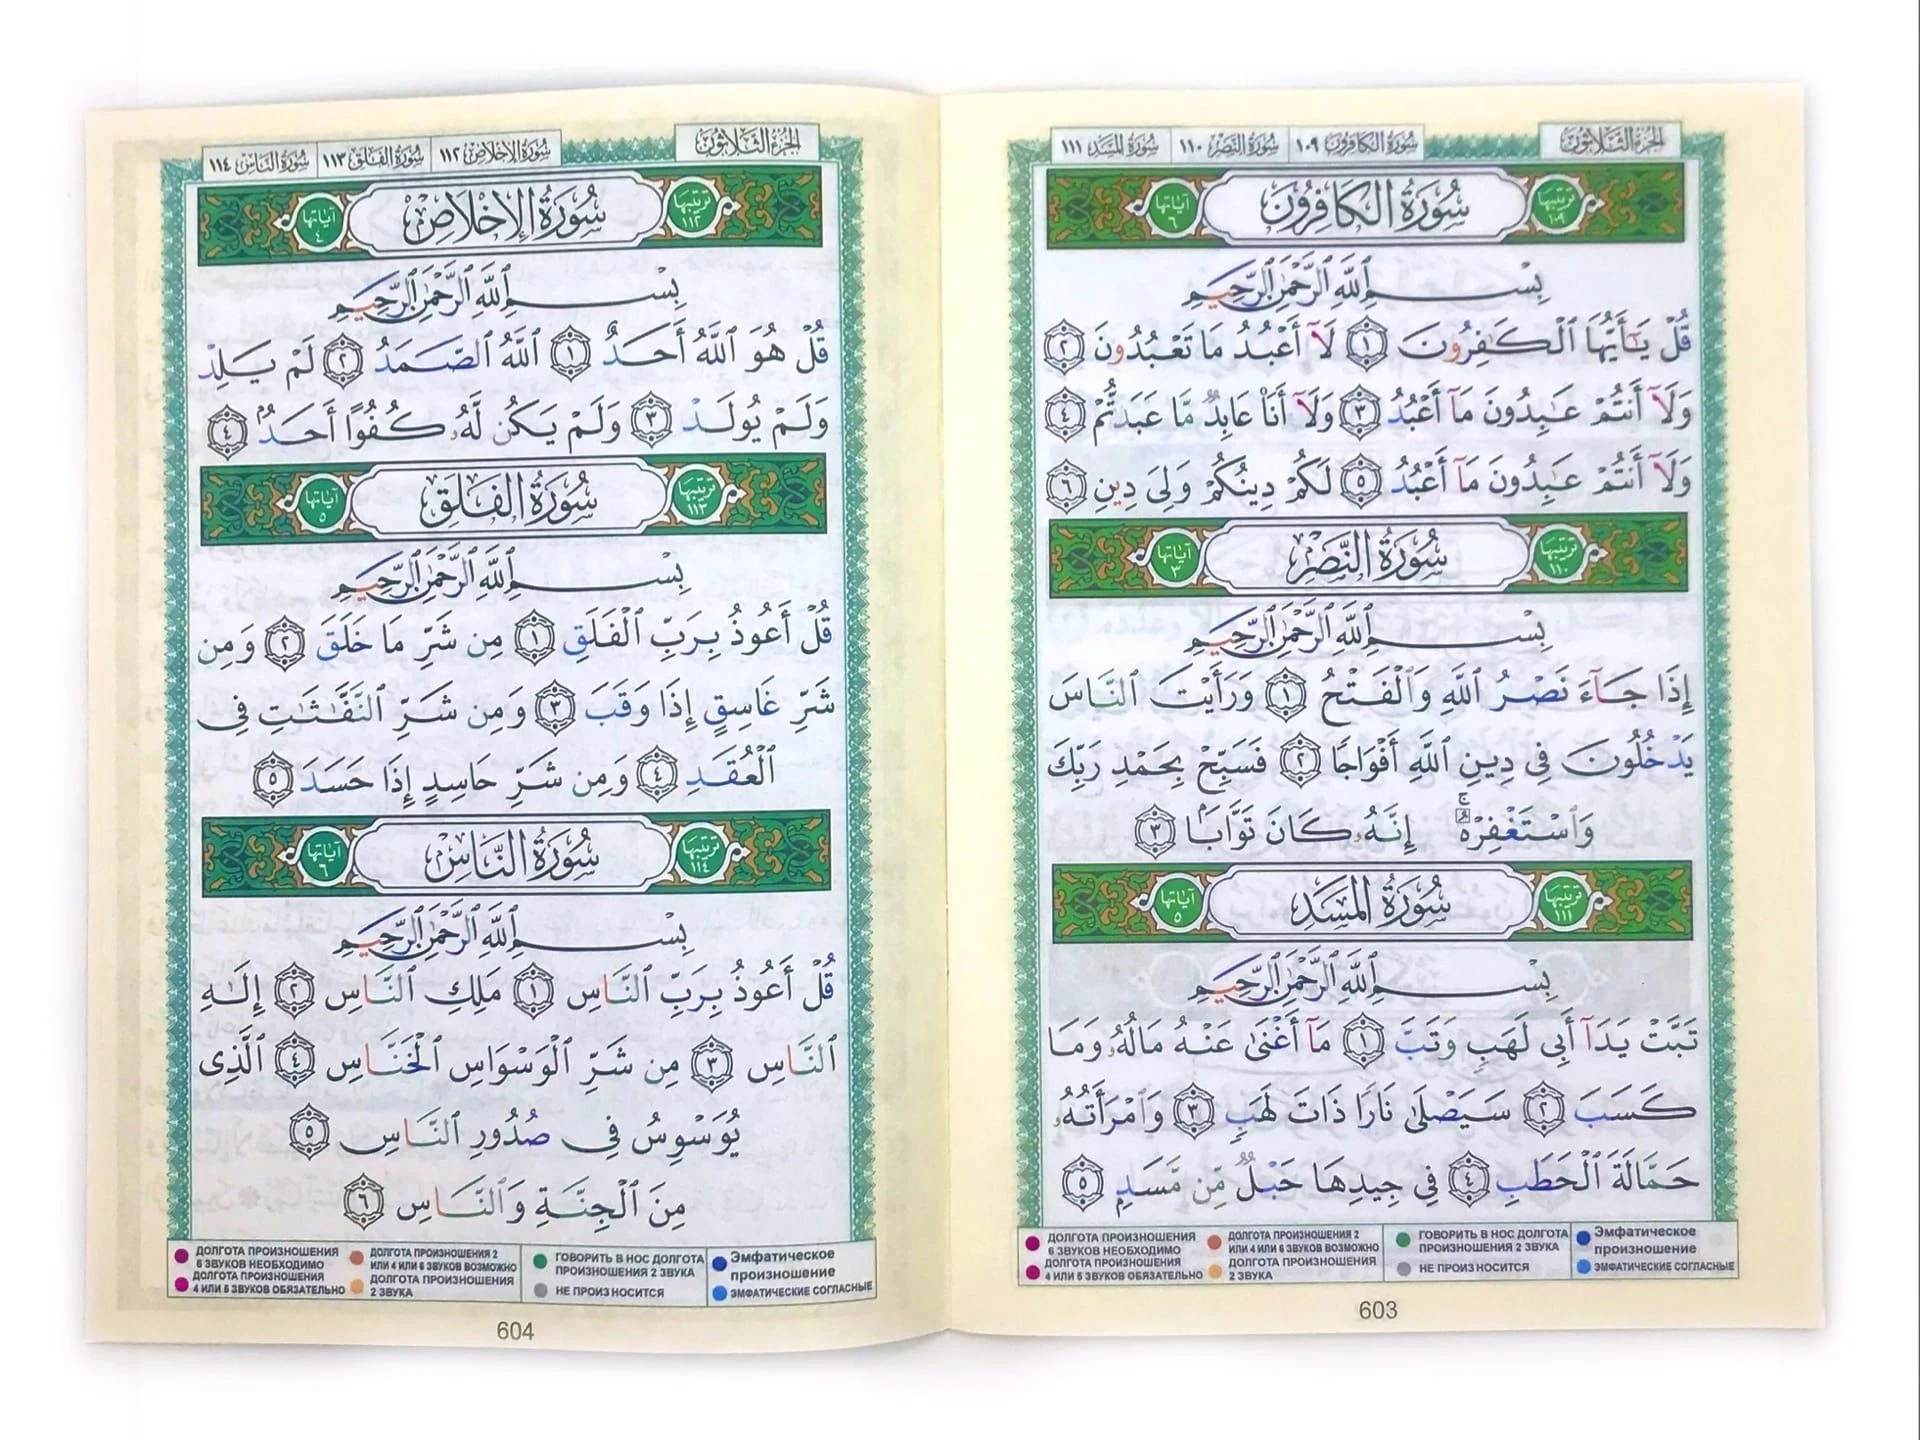 الجزء الثلاثون سورة الكافرون ١٠٩ سورة النصر ١١٠ سورة المسد ١١١
ترتيبها ١٠٩ سُورَةُ الكَافِرُونَ آياتها ٦
بِسْمِ ٱللَّهِ ٱلرَّحْمَٰنِ ٱلرَّحِيمِ
قُلْ يَٰٓأَيُّهَا ٱلْكَٰفِرُونَ ١ لَآ أَعْبُدُ مَا تَعْبُدُونَ ٢
وَلَآ أَنتُمْ عَٰبِدُونَ مَآ أَعْبُدُ ٣ وَلَآ أَنَا۠ عَابِدٌ مَّا عَبَدتُّمْ ٤
وَلَآ أَنتُمْ عَٰبِدُونَ مَآ أَعْبُدُ ٥ لَكُمْ دِينُكُمْ وَلِىَ دِينِ ٦
ترتيبها ١١٠ سُورَةُ النَّصْرِ آياتها ٣
بِسْمِ ٱللَّهِ ٱلرَّحْمَٰنِ ٱلرَّحِيمِ
إِذَا جَآءَ نَصْرُ ٱللَّهِ وَٱلْفَتْحُ ١ وَرَأَيْتَ ٱلنَّاسَ
يَدْخُلُونَ فِى دِينِ ٱللَّهِ أَفْوَاجًا ٢ فَسَبِّحْ بِحَمْدِ رَبِّكَ
وَٱسْتَغْفِرْهُ ۚ إِنَّهُۥ كَانَ تَوَّابًۢا ٣
ترتيبها ١١١ سُورَةُ المَسَدِ آياتها ٥
بِسْمِ ٱللَّهِ ٱلرَّحْمَٰنِ ٱلرَّحِيمِ
تَبَّتْ يَدَآ أَبِى لَهَبٍ وَتَبَّ ١ مَآ أَغْنَىٰ عَنْهُ مَالُهُۥ وَمَا
كَسَبَ ٢ سَيَصْلَىٰ نَارًا ذَاتَ لَهَبٍ ٣ وَٱمْرَأَتُهُۥ
حَمَّالَةَ ٱلْحَطَبِ ٤ فِى جِيدِهَا حَبْلٌ مِّن مَّسَدٍۭ ٥
ДОЛГОТА ПРОИЗНОШЕНИЯ
6 ЗВУКОВ НЕОБХОДИМО
ДОЛГОТА ПРОИЗНОШЕНИЯ
4 ИЛИ 5 ЗВУКОВ ОБЯЗАТЕЛЬНО
ДОЛГОТА ПРОИЗНОШЕНИЯ 2
ИЛИ 4 ИЛИ 6 ЗВУКОВ ВОЗМОЖНО
ДОЛГОТА ПРОИЗНОШЕНИЯ
2 ЗВУКА
ГОВОРИТЬ В НОС ДОЛГОТА
ПРОИЗНОШЕНИЯ 2 ЗВУКА
НЕ ПРОИЗНОСИТСЯ
Эмфатическое
произношение
ЭМФАТИЧЕСКИЕ СОГЛАСНЫЕ
603
الجزء الثلاثون سورة الإخلاص ١١٢ سورة الفلق ١١٣ سورة الناس ١١٤
ترتيبها ١١٢ سُورَةُ الإِخْلَاصِ آياتها ٤
بِسْمِ ٱللَّهِ ٱلرَّحْمَٰنِ ٱلرَّحِيمِ
قُلْ هُوَ ٱللَّهُ أَحَدٌ ١ ٱللَّهُ ٱلصَّمَدُ ٢ لَمْ يَلِدْ
وَلَمْ يُولَدْ ٣ وَلَمْ يَكُن لَّهُۥ كُفُوًا أَحَدٌۢ ٤
ترتيبها ١١٣ سُورَةُ الفَلَقِ آياتها ٥
بِسْمِ ٱللَّهِ ٱلرَّحْمَٰنِ ٱلرَّحِيمِ
قُلْ أَعُوذُ بِرَبِّ ٱلْفَلَقِ ١ مِن شَرِّ مَا خَلَقَ ٢ وَمِن
شَرِّ غَاسِقٍ إِذَا وَقَبَ ٣ وَمِن شَرِّ ٱلنَّفَّٰثَٰتِ فِى
ٱلْعُقَدِ ٤ وَمِن شَرِّ حَاسِدٍ إِذَا حَسَدَ ٥
ترتيبها ١١٤ سُورَةُ النَّاسِ آياتها ٦
بِسْمِ ٱللَّهِ ٱلرَّحْمَٰنِ ٱلرَّحِيمِ
قُلْ أَعُوذُ بِرَبِّ ٱلنَّاسِ ١ مَلِكِ ٱلنَّاسِ ٢ إِلَٰهِ
ٱلنَّاسِ ٣ مِن شَرِّ ٱلْوَسْوَاسِ ٱلْخَنَّاسِ ٤ ٱلَّذِى
يُوَسْوِسُ فِى صُدُورِ ٱلنَّاسِ ٥
مِنَ ٱلْجِنَّةِ وَٱلنَّاسِ ٦
ДОЛГОТА ПРОИЗНОШЕНИЯ
6 ЗВУКОВ НЕОБХОДИМО
ДОЛГОТА ПРОИЗНОШЕНИЯ
4 ИЛИ 5 ЗВУКОВ ОБЯЗАТЕЛЬНО
ДОЛГОТА ПРОИЗНОШЕНИЯ 2
ИЛИ 4 ИЛИ 6 ЗВУКОВ ВОЗМОЖНО
ДОЛГОТА ПРОИЗНОШЕНИЯ
2 ЗВУКА
ГОВОРИТЬ В НОС ДОЛГОТА
ПРОИЗНОШЕНИЯ 2 ЗВУКА
НЕ ПРОИЗНОСИТСЯ
Эмфатическое
произношение
ЭМФАТИЧЕСКИЕ СОГЛАСНЫЕ
604